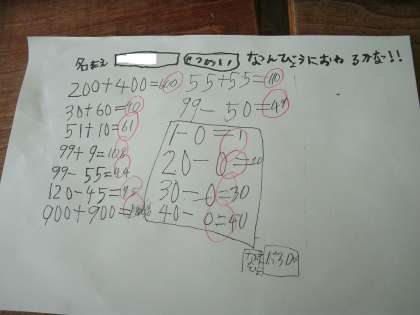 名まえ せつめい なんびょうにおわるかな!!
200+400=600 55+55=110
30+60=90 99-50=49
51+10=61
1-0=1
99+9=108
20-0=20
99-55=44
30-0=30
120-45=75
40-0=40
900+900=1800